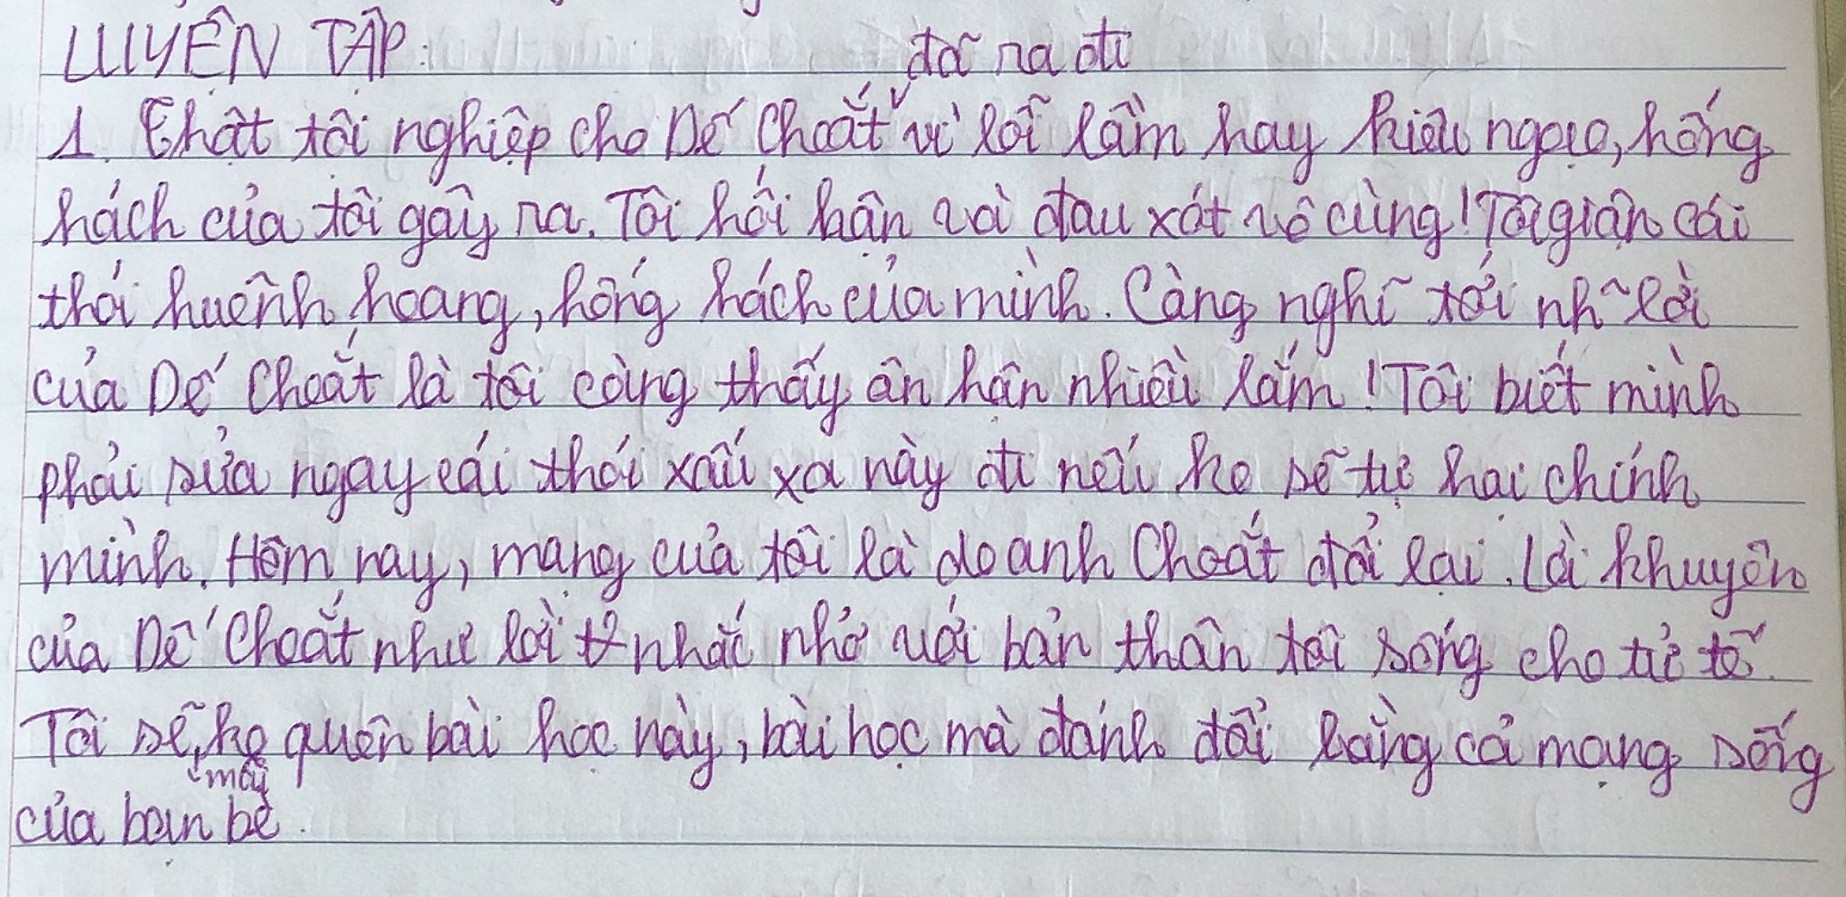 LUYỆN TẬP:
đã ra đi
1. Thật tội nghiệp cho Dế Choắt vì lỗi lầm hay kiêu ngạo, hống
hách của tôi gây ra. Tôi hối hận và đau xót vô cùng! Tôi giận cái
thói huênh hoang, hống hách của mình. Càng nghĩ tới nh~ lời
của Dế Choắt là tôi càng thấy ân hận nhiều lắm! Tôi biết mình
phải sửa ngay cái thói xấu xa này đi nếu ko sẽ tự hại chính
mình. Hôm nay, mạng của tôi là do anh Choắt đổi lại. Lời khuyên
của Dế Choắt như lời nhắc nhở với bản thân tôi sống cho tử tế.
Tôi sẽ ko quên bài học này, bài học mà đánh đổi bằng cả mạng sống
mãi
của bạn bè.